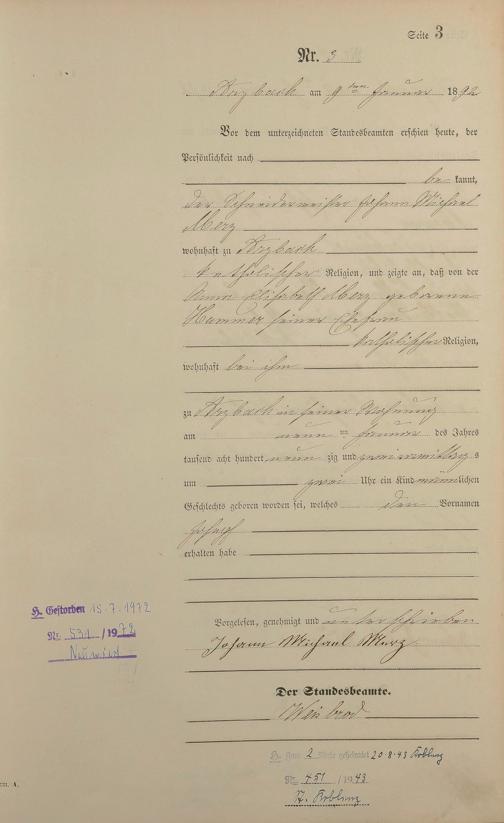 Seite 3
Nr. 3
Arzbach am 9ten Januar 1892
Vor dem unterzeichneten Standesbeamten erschien heute, der
Persönlichkeit nach
be kannt,
der Schneidermeister Johann Michael
Merz
wohnhaft zu Arzbach
katholischer Religion, und zeigte an, daß von der
Anna Elisabeth Merz geborene
Hammer seiner Ehefrau
katholischer Religion,
wohnhaft bei ihm
zu Arzbach in seiner Wohnung
am neunten Januar des Jahres
tausend acht hundert neun zig und zwei vormittags
um zwei Uhr ein Kind männlichen
Geschlechts geboren worden sei, welches den Vornamen
Joseph
erhalten habe
Vorgelesen, genehmigt und unterschrieben
Johann Michael Merz
Der Standesbeamte.
Weisbrod
H. Gestorben 15.7.1972
Nr. 531 /1972
Neuwied
H. Zum 2 Male geheiratet 20.8.43 Koblenz
Nr. 451 /1943
St. Koblenz